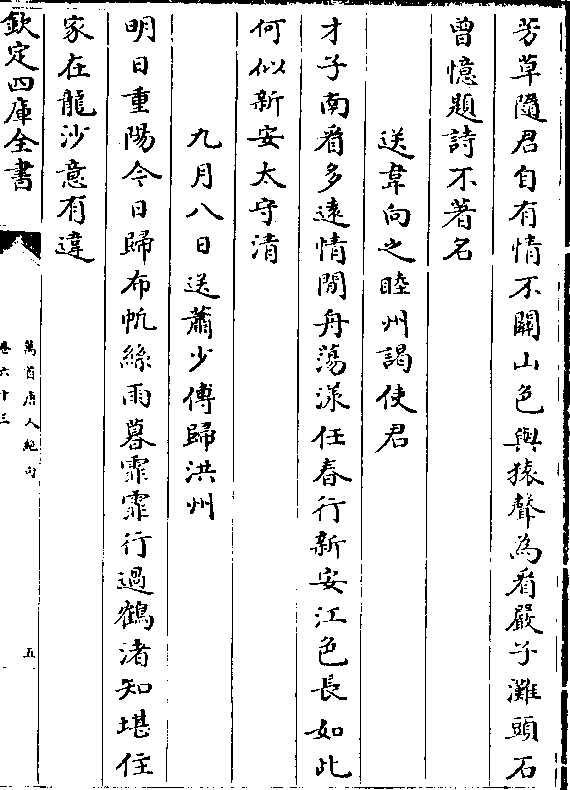 芳草隨君自有情不關山色與猿聲為看嚴子灘頭石
曾憶題詩不著名
送韋向之睦州謁使君
才子南看多遠情閒舟蕩漾任春行新安江色長如此
何似新安太守清
九月八日送蕭少傅歸洪州
明日重陽今日歸布帆絲雨暮霏霏行過鶴渚知堪住
家在龍沙意有違
欽定四庫全書
萬首唐人絕句
卷六十三
五